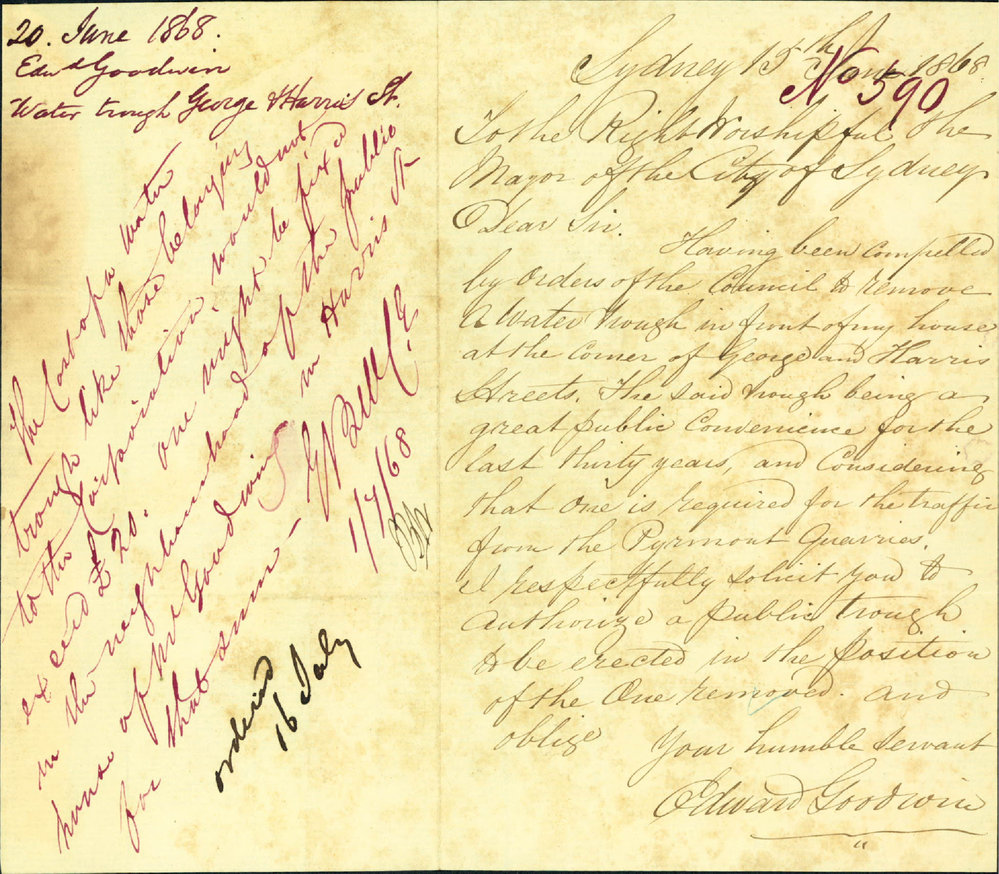 20. June 1868.
Edwd Goodwin
Water trough George & Harris St.
The Cost of a water
trough like those belonging
to the Corporation, would not
exceed £20. one might be fixed
in the neighbourhood of the public
house of Mr Goodwin in Harris St
for that sum —
Bell C.E
1/7/68
ordered
16 July
Sydney 15th June 1868
No 590
To the Right Worshipful the
Mayor of the City of Sydney
Dear Sir.
Having been compelled
by orders of the Council to remove
A Water trough in front of my house
at the Corner of George and Harris
Streets. The said trough being a
great public Convenience for the
last thirty years, and Considering
that one is required for the traffic
from the Pyrmont Quarries.
I respectfully solicit you to
Authorize a public trough
to be erected in the position
of the One removed. and
oblige
Your humble servant
Edward Goodwin